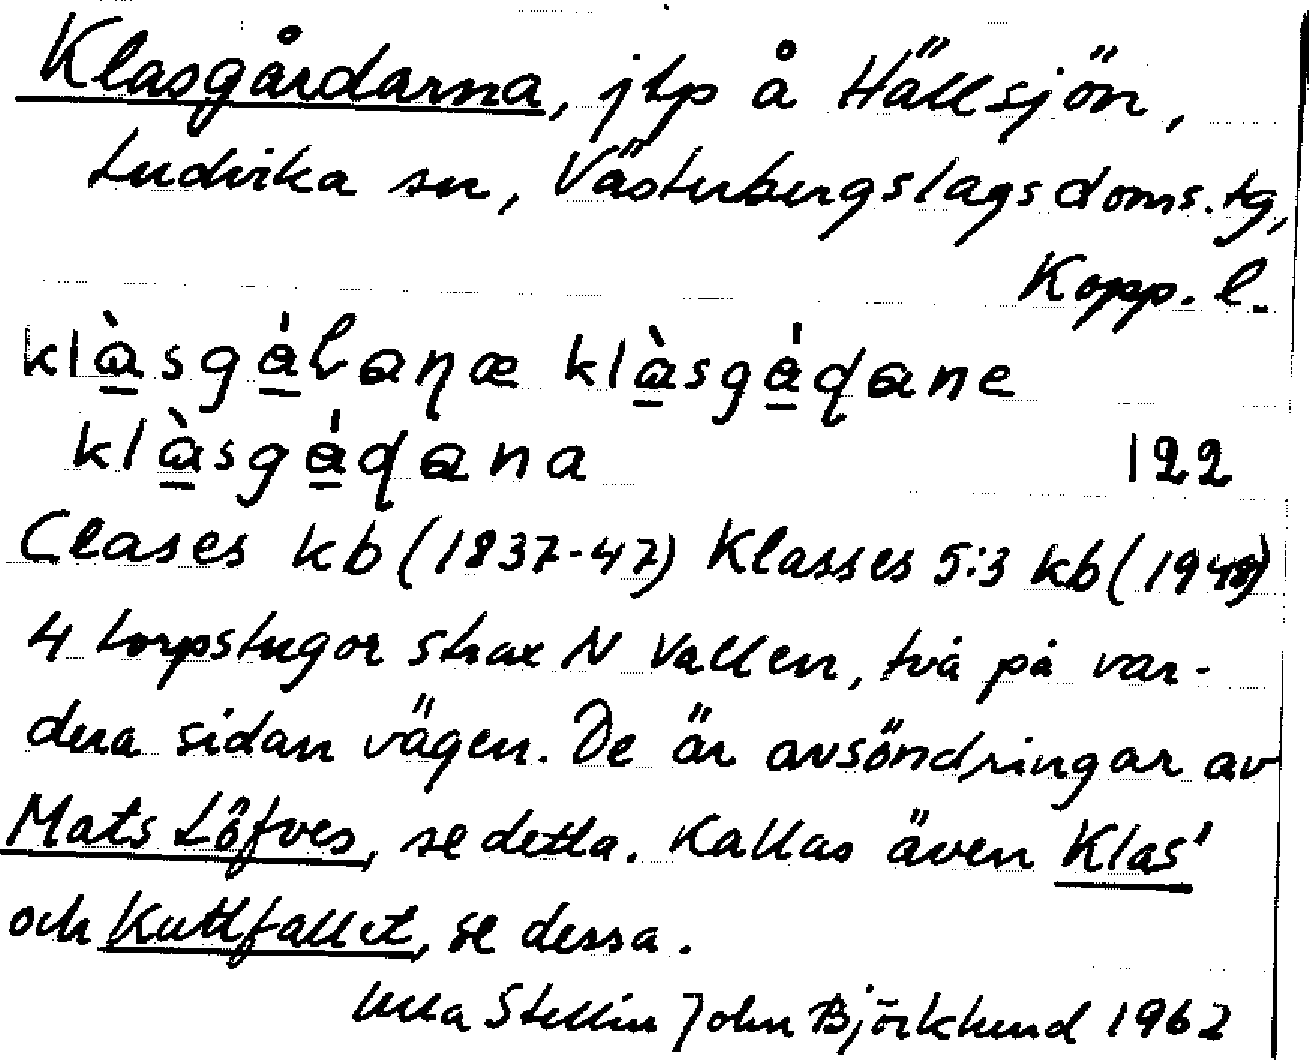 Klasgårdarna, jlp å Hällsjön,
Ludvika sn, Västerbergslags doms.tg,
Kopp. l.
122
Clases kb (1837-47) Klasses 5:3 kb (1948)
4 torpstugor strax N Vallen, två på var-
dera sidan vägen. De är avsöndringar av
Mats Löfves, se detta. Kallas även Klas'
och Kuttfallet, se dessa.
Ulla Stellin John Björklund 1962